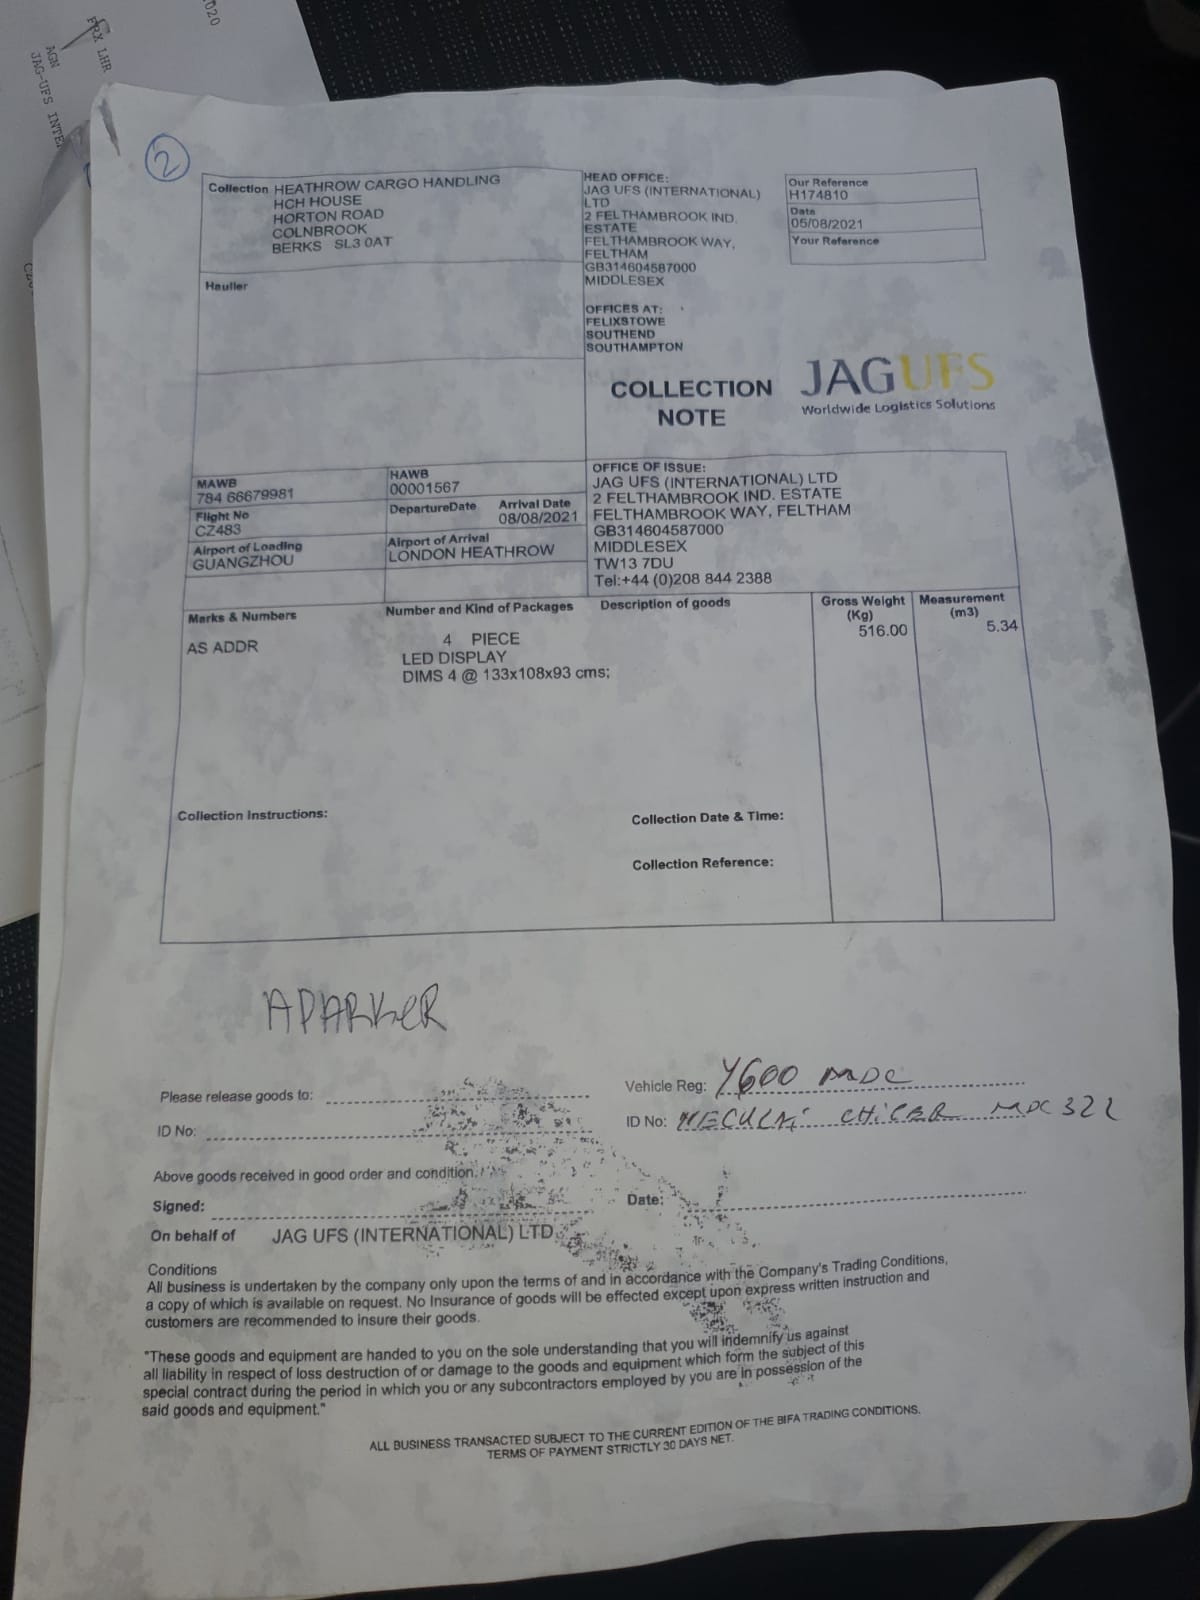 020
PRX LHR
AGN
JAG-UFS INTE
2
Collection HEATHROW CARGO HANDLING
HCH HOUSE
HORTON ROAD
COLNBROOK
BERKS SL3 0AT
Haulier
HEAD OFFICE:
JAG UFS (INTERNATIONAL)
LTD
2 FELTHAMBROOK IND.
ESTATE
FELTHAMBROOK WAY,
FELTHAM
GB314604587000
MIDDLESEX
OFFICES AT:
FELIXSTOWE
SOUTHEND
SOUTHAMPTON
Our Reference
H174810
Date
05/08/2021
Your Reference
COLLECTION
NOTE
JAGUFS
Worldwide Logistics Solutions
MAWB
784 66679981
HAWB
00001567
Flight No
CZ483
DepartureDate Arrival Date
08/08/2021
Airport of Loading
GUANGZHOU
Airport of Arrival
LONDON HEATHROW
OFFICE OF ISSUE:
JAG UFS (INTERNATIONAL) LTD
2 FELTHAMBROOK IND. ESTATE
FELTHAMBROOK WAY, FELTHAM
GB314604587000
MIDDLESEX
TW13 7DU
Tel:+44 (0)208 844 2388
Marks & Numbers Number and Kind of Packages Description of goods Gross Weight (Kg) Measurement (m3)
AS ADDR 4 PIECE 516.00 5.34
LED DISPLAY
DIMS 4 @ 133x108x93 cms;
Collection Instructions:
Collection Date & Time:
Collection Reference:
APARKER
Please release goods to:
Vehicle Reg: Y600 MDC
ID No:
ID No: NECULAI CHICER MDC 322
Above goods received in good order and condition.
Signed:
Date:
On behalf of JAG UFS (INTERNATIONAL) LTD
Conditions
All business is undertaken by the company only upon the terms of and in accordance with the Company's Trading Conditions,
a copy of which is available on request. No Insurance of goods will be effected except upon express written instruction and
customers are recommended to insure their goods.
"These goods and equipment are handed to you on the sole understanding that you will indemnify us against
all liability in respect of loss destruction of or damage to the goods and equipment which form the subject of this
special contract during the period in which you or any subcontractors employed by you are in possession of the
said goods and equipment."
ALL BUSINESS TRANSACTED SUBJECT TO THE CURRENT EDITION OF THE BIFA TRADING CONDITIONS.
TERMS OF PAYMENT STRICTLY 30 DAYS NET.